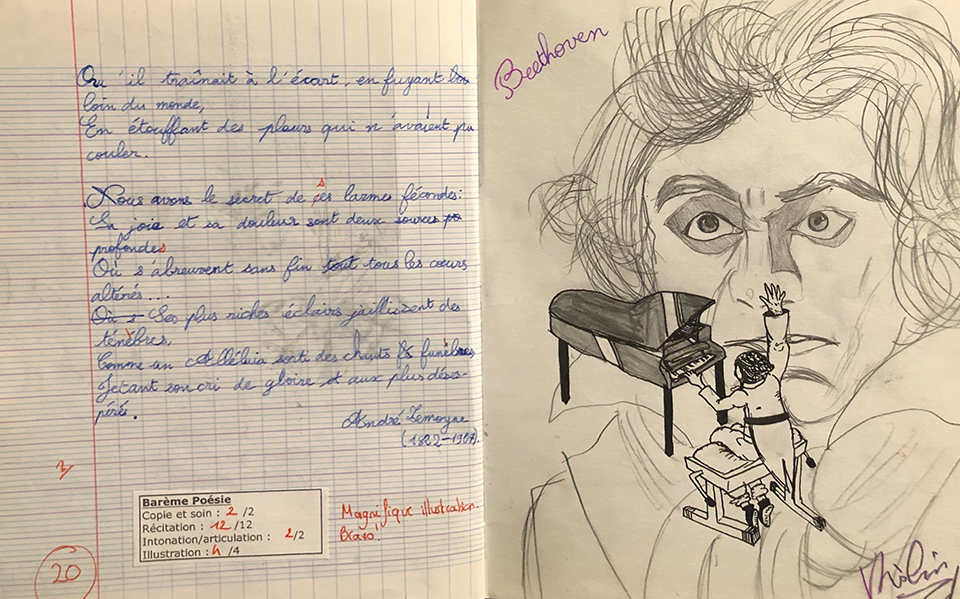 Qu'il traînait à l'écart, en fuyant
loin du monde,
En étouffant des pleurs qui n'avaient pu
couler.
Nous avons le secret de ses larmes fécondes:
Sa joie et sa douleur sont deux sources po
profondes
Où s'abreuvent sans fin tout tous les cœurs
altérés...
Où s Ses plus riches éclairs jaillissent des
ténèbres,
Comme un Alléluia sorti des chants fs funèbres
Jetant son cri de gloire, et aux plus déses-
pérés.
André Lemoyne
(1822-1907).
Barème Poésie
Copie et soin : 2 /2
Récitation : 12 /12
Intonation/articulation : 2/2
Illustration : 4 /4
Magnifique illustration.
Bravo!
20
Beethoven